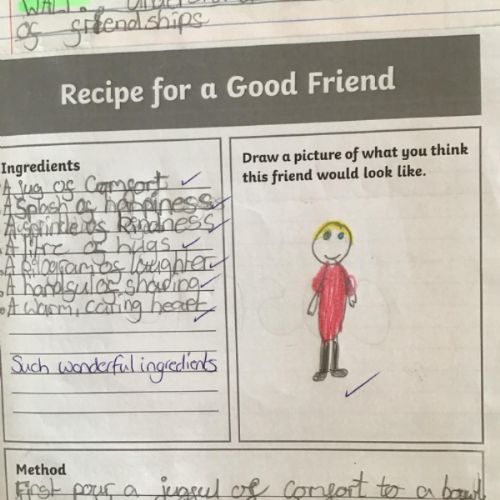 WALT:
of friendships
Recipe for a Good Friend
Ingredients
A jug of Comfort
A Splash of happiness
A sprinkle of kindness
A litre of hugs
A kilogram of laughter
A handful of sharing
A warm, caring heart
Such wonderful ingredients
Draw a picture of what you think
this friend would look like.
Method
First pour a jugful of comfort to a bowl